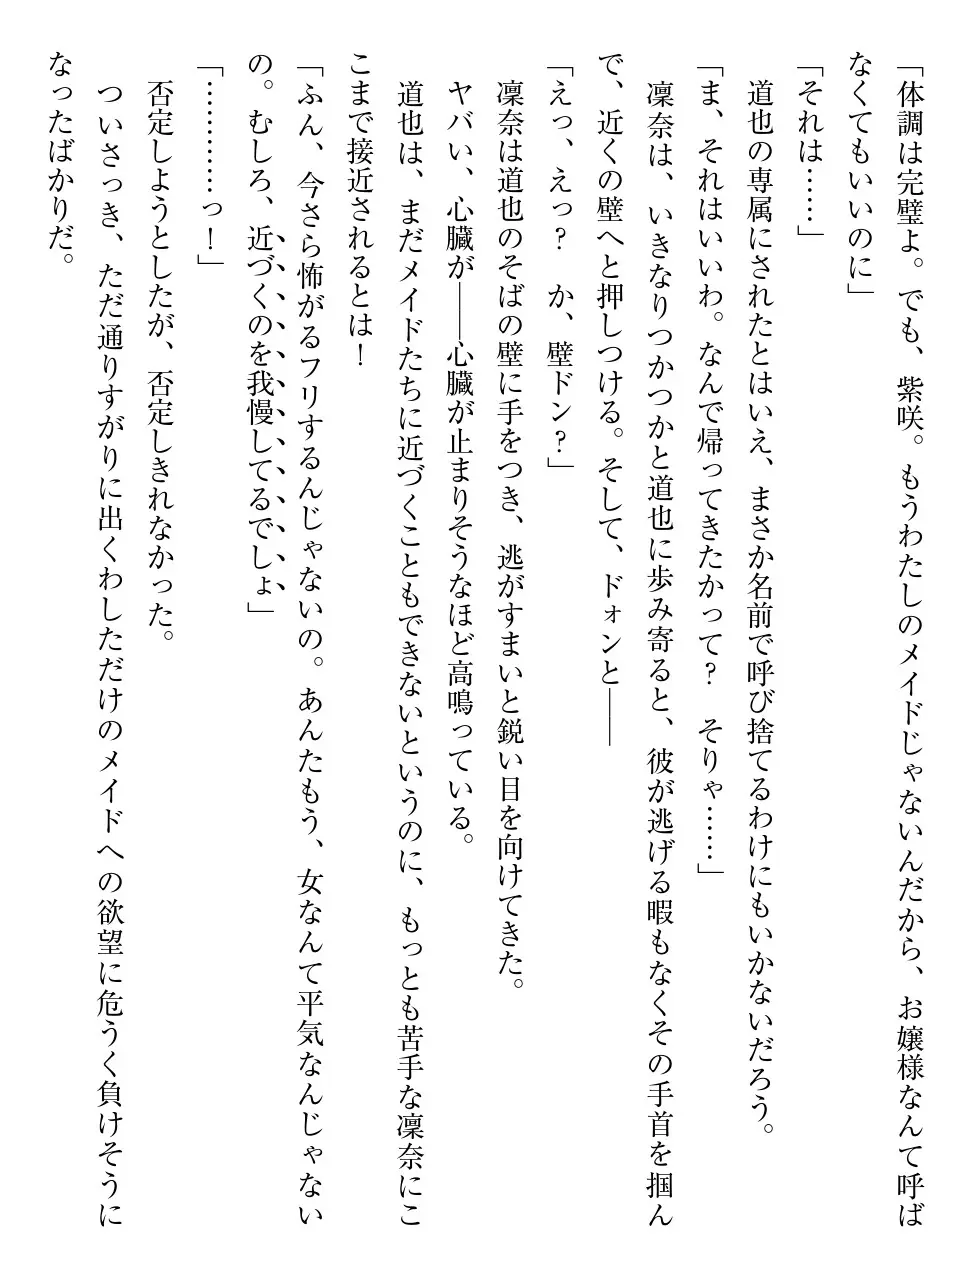 「体調は完璧よ。でも、紫咲。もうわたしのメイドじゃないんだから、お嬢様なんて呼ば
なくてもいいのに」
「それは……」
　道也の専属にされたとはいえ、まさか名前で呼び捨てるわけにもいかないだろう。
「ま、それはいいわ。なんで帰ってきたかって？　そりゃ……」
　凜奈は、いきなりつかつかと道也に歩み寄ると、彼が逃げる暇もなくその手首を掴ん
で、近くの壁へと押しつける。そして、ドォンと――
「えっ、えっ？　か、壁ドン？」
　凜奈は道也のそばの壁に手をつき、逃がすまいと鋭い目を向けてきた。
　ヤバい、心臓が――心臓が止まりそうなほど高鳴っている。
　道也は、まだメイドたちに近づくこともできないというのに、もっとも苦手な凜奈にこ
こまで接近されるとは！
「ふん、今さら怖がるフリするんじゃないの。あんたもう、女なんて平気なんじゃない
の。むしろ、近づくのを我慢してるでしょ」
「…………っ！」
　否定しようとしたが、否定しきれなかった。
　ついさっき、ただ通りすがりに出くわしただけのメイドへの欲望に危うく負けそうに
なったばかりだ。